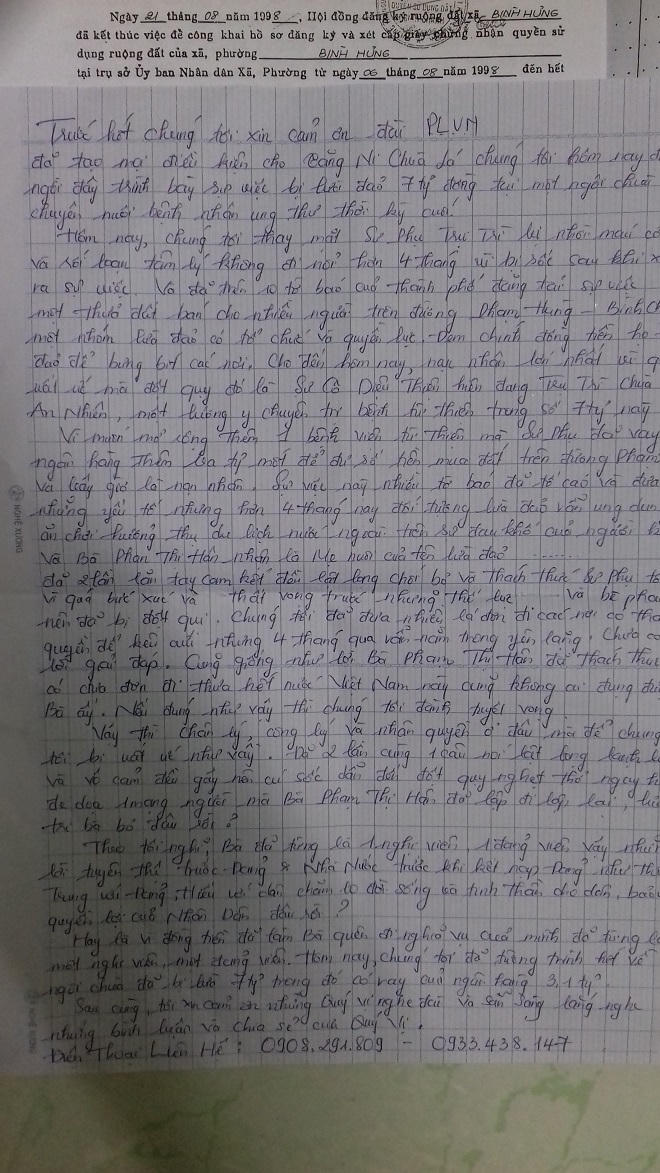 Ngày 21 tháng 08 năm 1998, Hội đồng đăng ký ruộng đất xã, BÌNH HƯNG
đã kết thúc việc để công khai hồ sơ đăng ký và xét cấp giấy chứng nhận quyền sử
dụng ruộng đất của xã, phường BÌNH HƯNG
tại trụ sở Ủy ban Nhân dân Xã, Phường từ ngày 06 tháng 08 năm 1998 đến hết
Trước hết chúng tôi xin cảm ơn đài PLVN
đã tạo mọi điều kiện cho Tăng Ni Chùa chúng tôi hôm nay
ngồi đây trình bày sự việc bị lừi đảo 7 tỷ đồng tại một ngôi chùa
chuyên nuôi bệnh nhân ung thư thời kỳ cuối.
Hôm nay, chúng tôi thay mặt Sư Phụ Trụ Trì bị nhồi máu
và rối loạn tâm lý không đi nổi hơn 4 tháng vì bị sốc sau khi
ra sự việc. Và đã trên 10 tờ báo của thành phố đăng tải sự việc
một thửa đất bán cho nhiều người trên đường Phạm Hùng - Bình
một nhóm lừa đảo có tổ chức và quyền lực. Đem chính đồng tiền
đảo để bưng bít các nơi. Cho đến hôm nay, nạn nhân lớn nhất vì
uất ức mà đột quỵ đó là Sư Cô Diệu Thiện hiện đang Trụ Trì chùa
An Nhiên, một lương y chuyên trị bệnh từ thiện trong số 7 tỷ này
Vì muốn mở rộng thêm 1 bệnh viện từ thiện mà Sư phụ đã vay
ngân hàng thêm ba tỷ mốt để đủ số tiền mua đất trên đường Phạm
Và bây giờ là nạn nhân. Sự việc này nhiều tờ báo đã tố cáo và đưa
những yếu tố nhưng hơn 4 tháng nay đối tượng lừa đảo vẫn ung dung
ăn chơi hưởng thụ du lịch nước ngoài trên sự đau khổ của người
Và Bà Phạm Thị Hân nhận là Mẹ nuôi của tên lừa đảo ........
đã 2 lần lăn tay cam kết đều lật lọng chối bỏ và thách thức Sư Phụ
Vì quá bức xúc và thất vọng trước những thế lực Và bè
nên đã bị đột quị. Chúng tôi đã đưa nhiều lá đơn đi các nơi có
quyền để kêu cứu nhưng 4 tháng qua vẫn nằm trong yên lặng. Chưa có
lời giải đáp. Cũng giống như lời Bà Phạm Thị Hân đã thách thức
có chùa đơn đi thưa hết nước Việt Nam này cũng không ai đụng
Bà ấy. Nếu đúng như vậy thì chúng tôi đành tuyệt vọng
Vậy thì chân lý, công lý và nhân quyền ở đâu mà để chúng
tôi bị uất ức như vậy. Đã 2 lần cùng 1 câu nói lật lọng lạnh
và vô cảm đều gây nên cú sốc dẫn đến đột quỵ nghẹt thở nguy
đe dọa 1 mạng người mà Bà Phạm Thị Hân đã lập đi lập lại,
trí bà bỏ đâu rồi?
Theo tôi nghĩ, Bà đã từng là 1 nghị viên, 1 đảng viên vậy
lời tuyên thệ trước Đảng & Nhà Nước trước khi kết nạp Đảng như
Trung với Đảng, Hiếu với dân chăm lo đời sống và tinh thần cho dân, bảo
quyền lợi của Nhân Dân đâu rồi?
Hay là vì đồng tiền đã làm Bà quên đi nghĩa vụ của mình đã từng
một nghị viên, một đảng viên. Hôm nay, chúng tôi đã tường trình hết về
ngôi chùa đã bị lừa 7 tỷ trong đó có vay của ngân hàng 3,1 tỷ.
Sau cùng, tôi xin cảm ơn những Quý vị nghe đài và sẵn sàng lắng nghe
những bình luận và chia sẻ của Quý Vị.
Điện Thoại Liên Hệ: 0908.291.809 - 0933.438.147
NGHỆ HƯƠNG